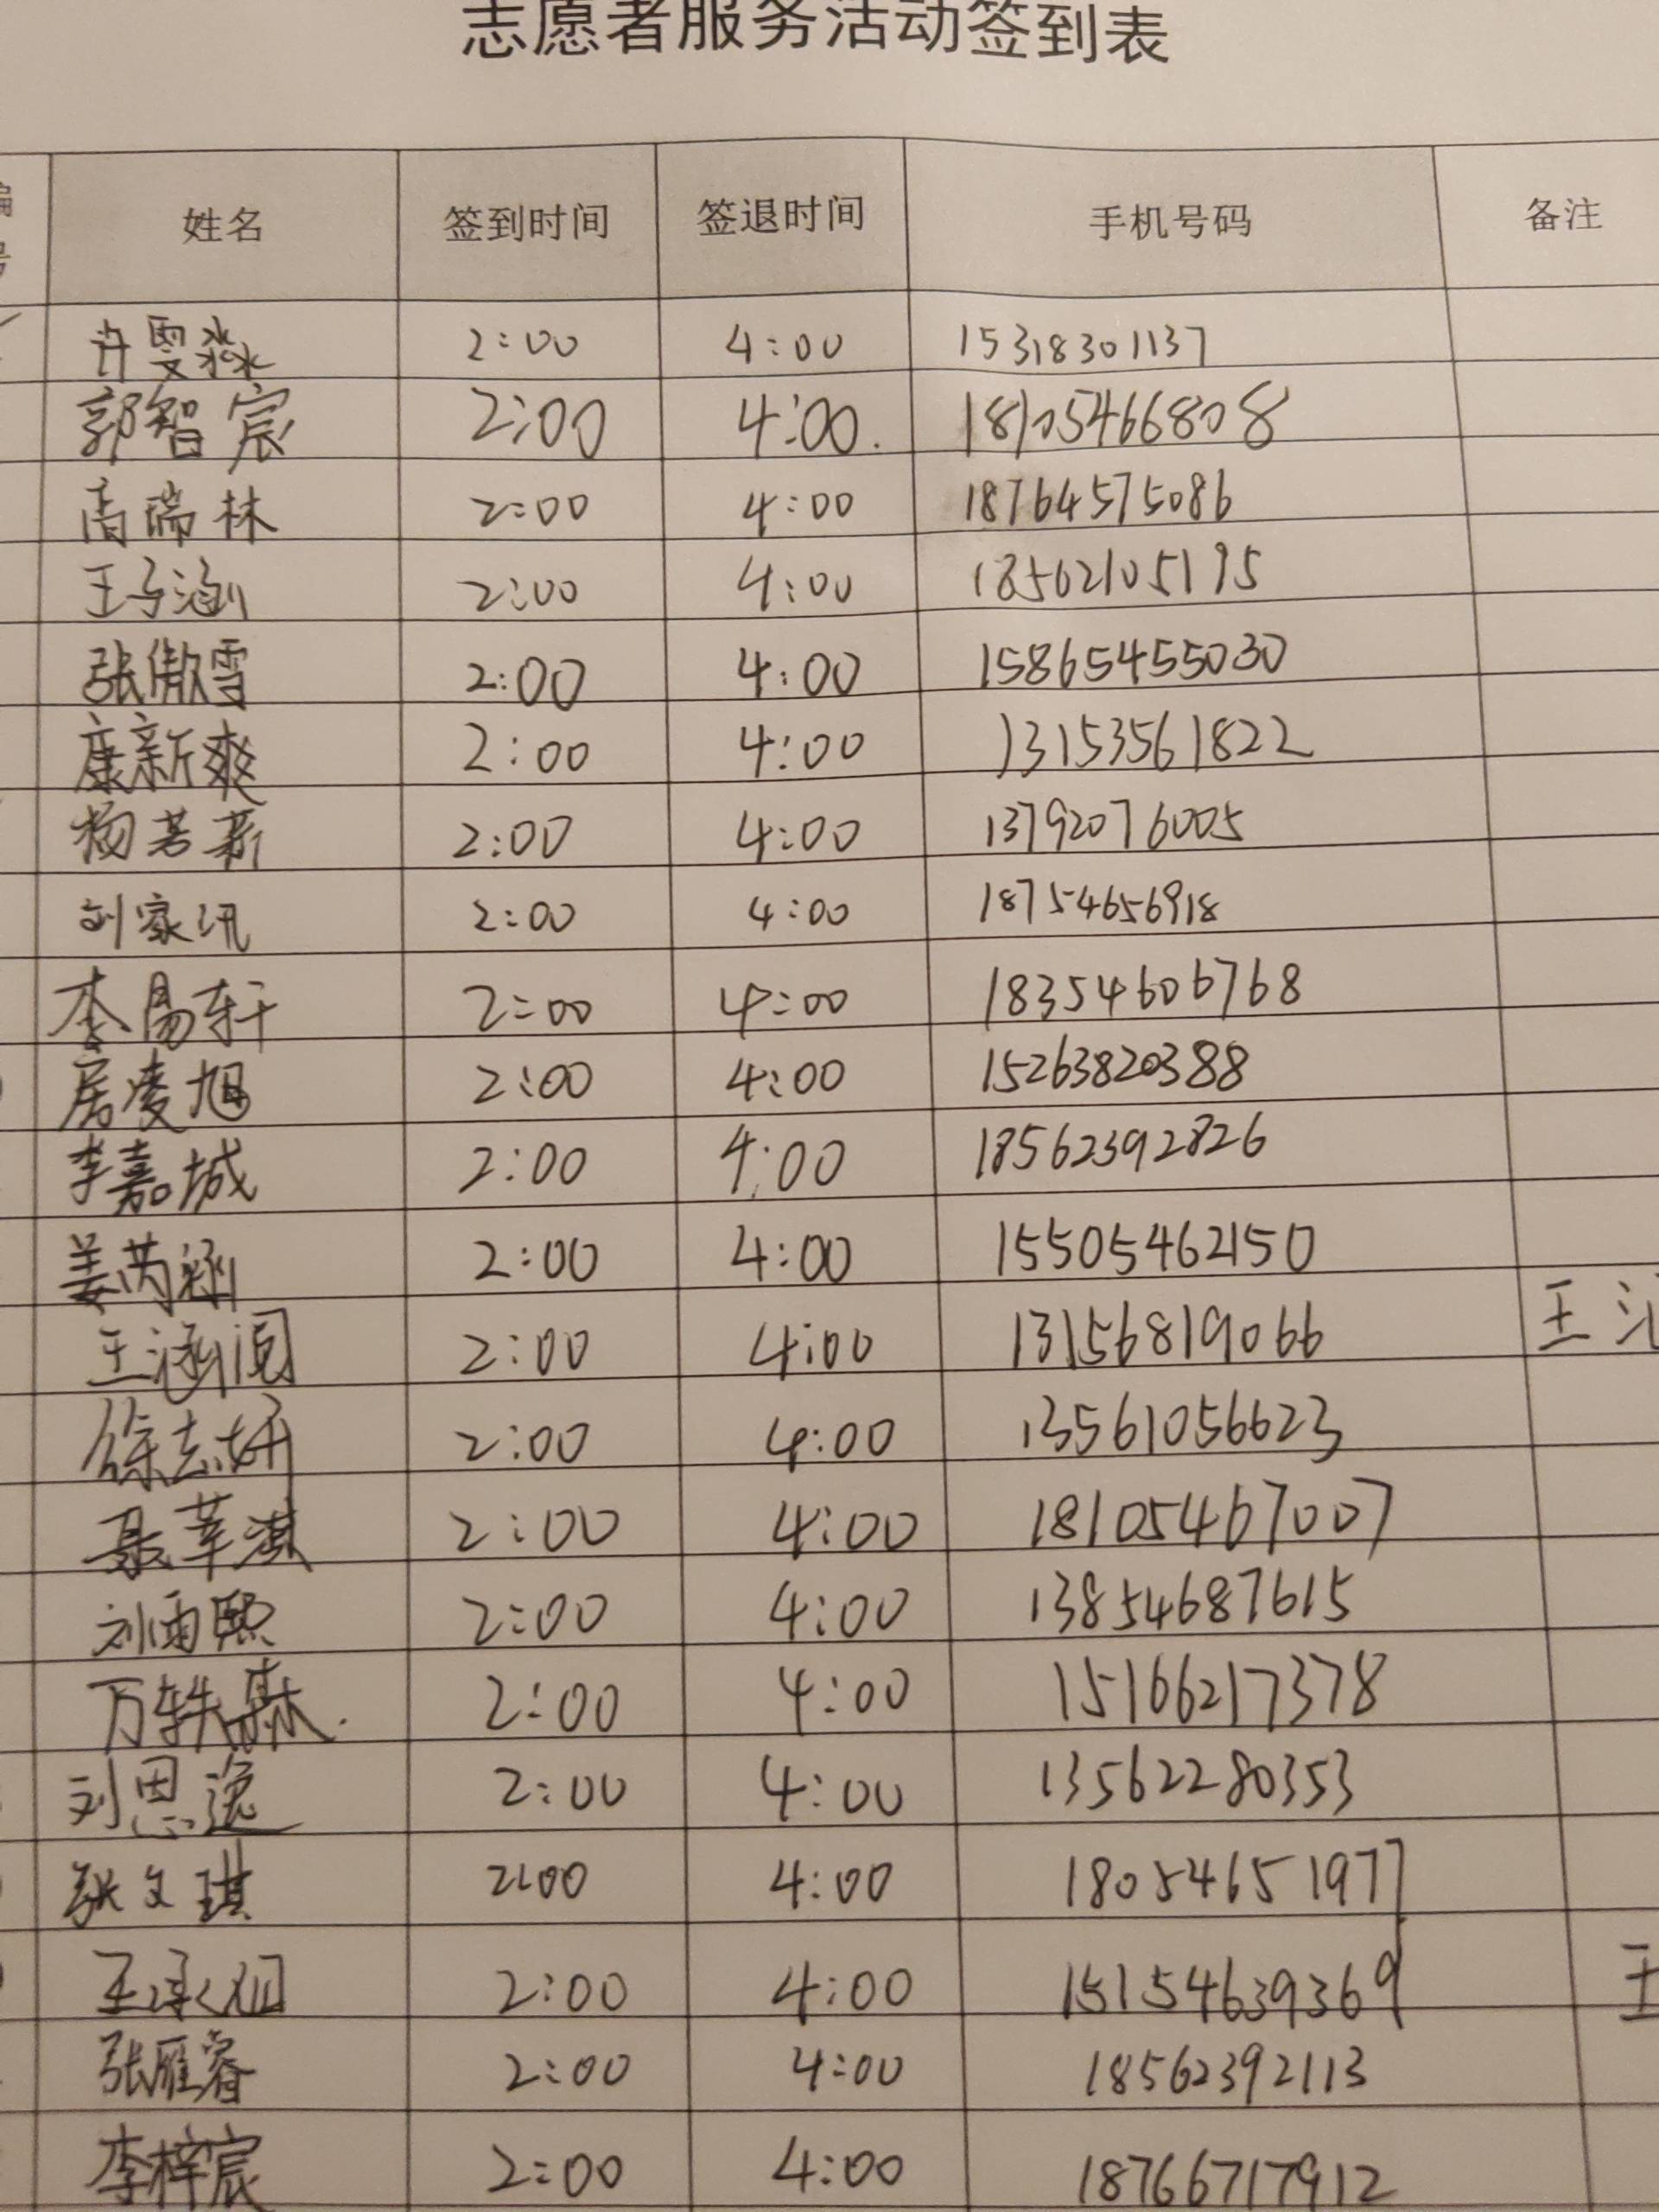 志愿者服务活动签到表
编号 姓名 签到时间 签退时间 手机号码 备注
许雯淼 2:00 4:00 15318301137
郭智宸 2:00 4:00. 18105466808
高瑞林 2:00 4:00 18764575086
王子涵 2:00 4:00 18562105195
张傲雪 2:00 4:00 15865455030
康新爽 2:00 4:00 13153561822
杨若新 2:00 4:00 13792076005
刘家汛 2:00 4:00 18754656918
李易轩 2:00 4:00 18354606768
房凌旭 2:00 4:00 15263820388
李嘉城 2:00 4:00 18562392826
姜芮涵 2:00 4:00 15505462150
王涵阅 2:00 4:00 13156819066 王
徐志妍 2:00 4:00 13561056623
聂莘淇 2:00 4:00 18105467007
刘雨熙 2:00 4:00 13854687615
万轶霖. 2:00 4:00 15166217378
刘恩逸 2:00 4:00 13562280353
张文琪 2:00 4:00 18054651977
王 2:00 4:00 15154639369 王
张雁睿 2:00 4:00 18562392113
李梓宸 2:00 4:00 18766717912